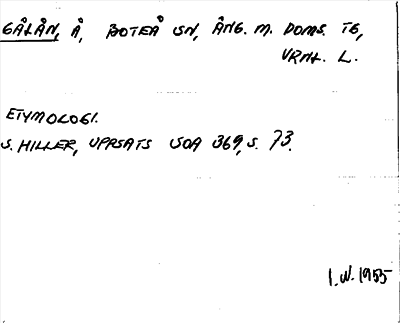 GÅLÅN, Å, BOTEÅ SN, ÅNG. M. DOMS. TG,
VRNL. L.
ETYMOLOGI.
S. HILLER, UPPSATS UOA 369, S. 73.
I. W. 1955